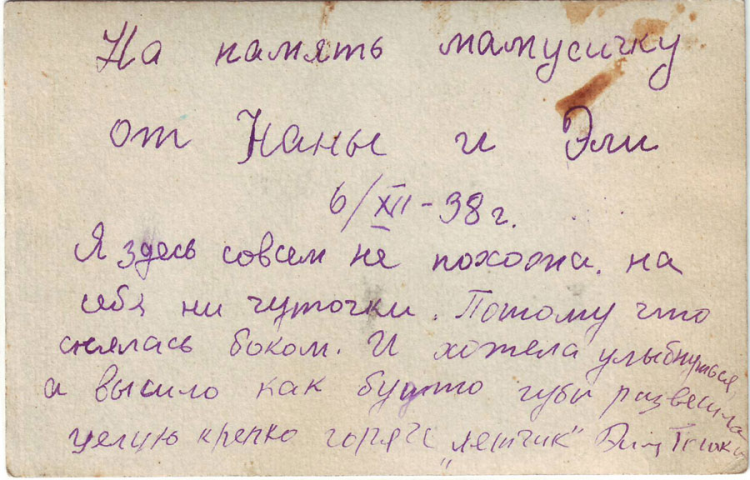 На память мамусичку
от Наны и Эли
6/XII-38 г.
Я здесь совсем не похожа. на
себя ни чуточки. Потому что
снялась боком. И хотела улыбнуться,
а вышло как будто губы развесила
целую крепко горячо "летчик"